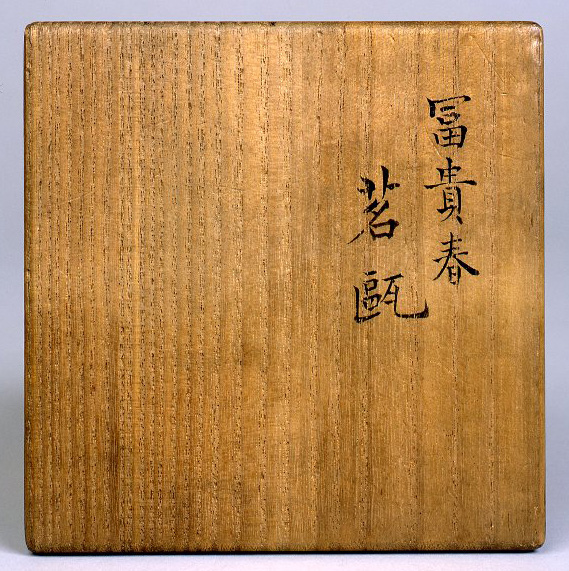 冨貴春
茗甌